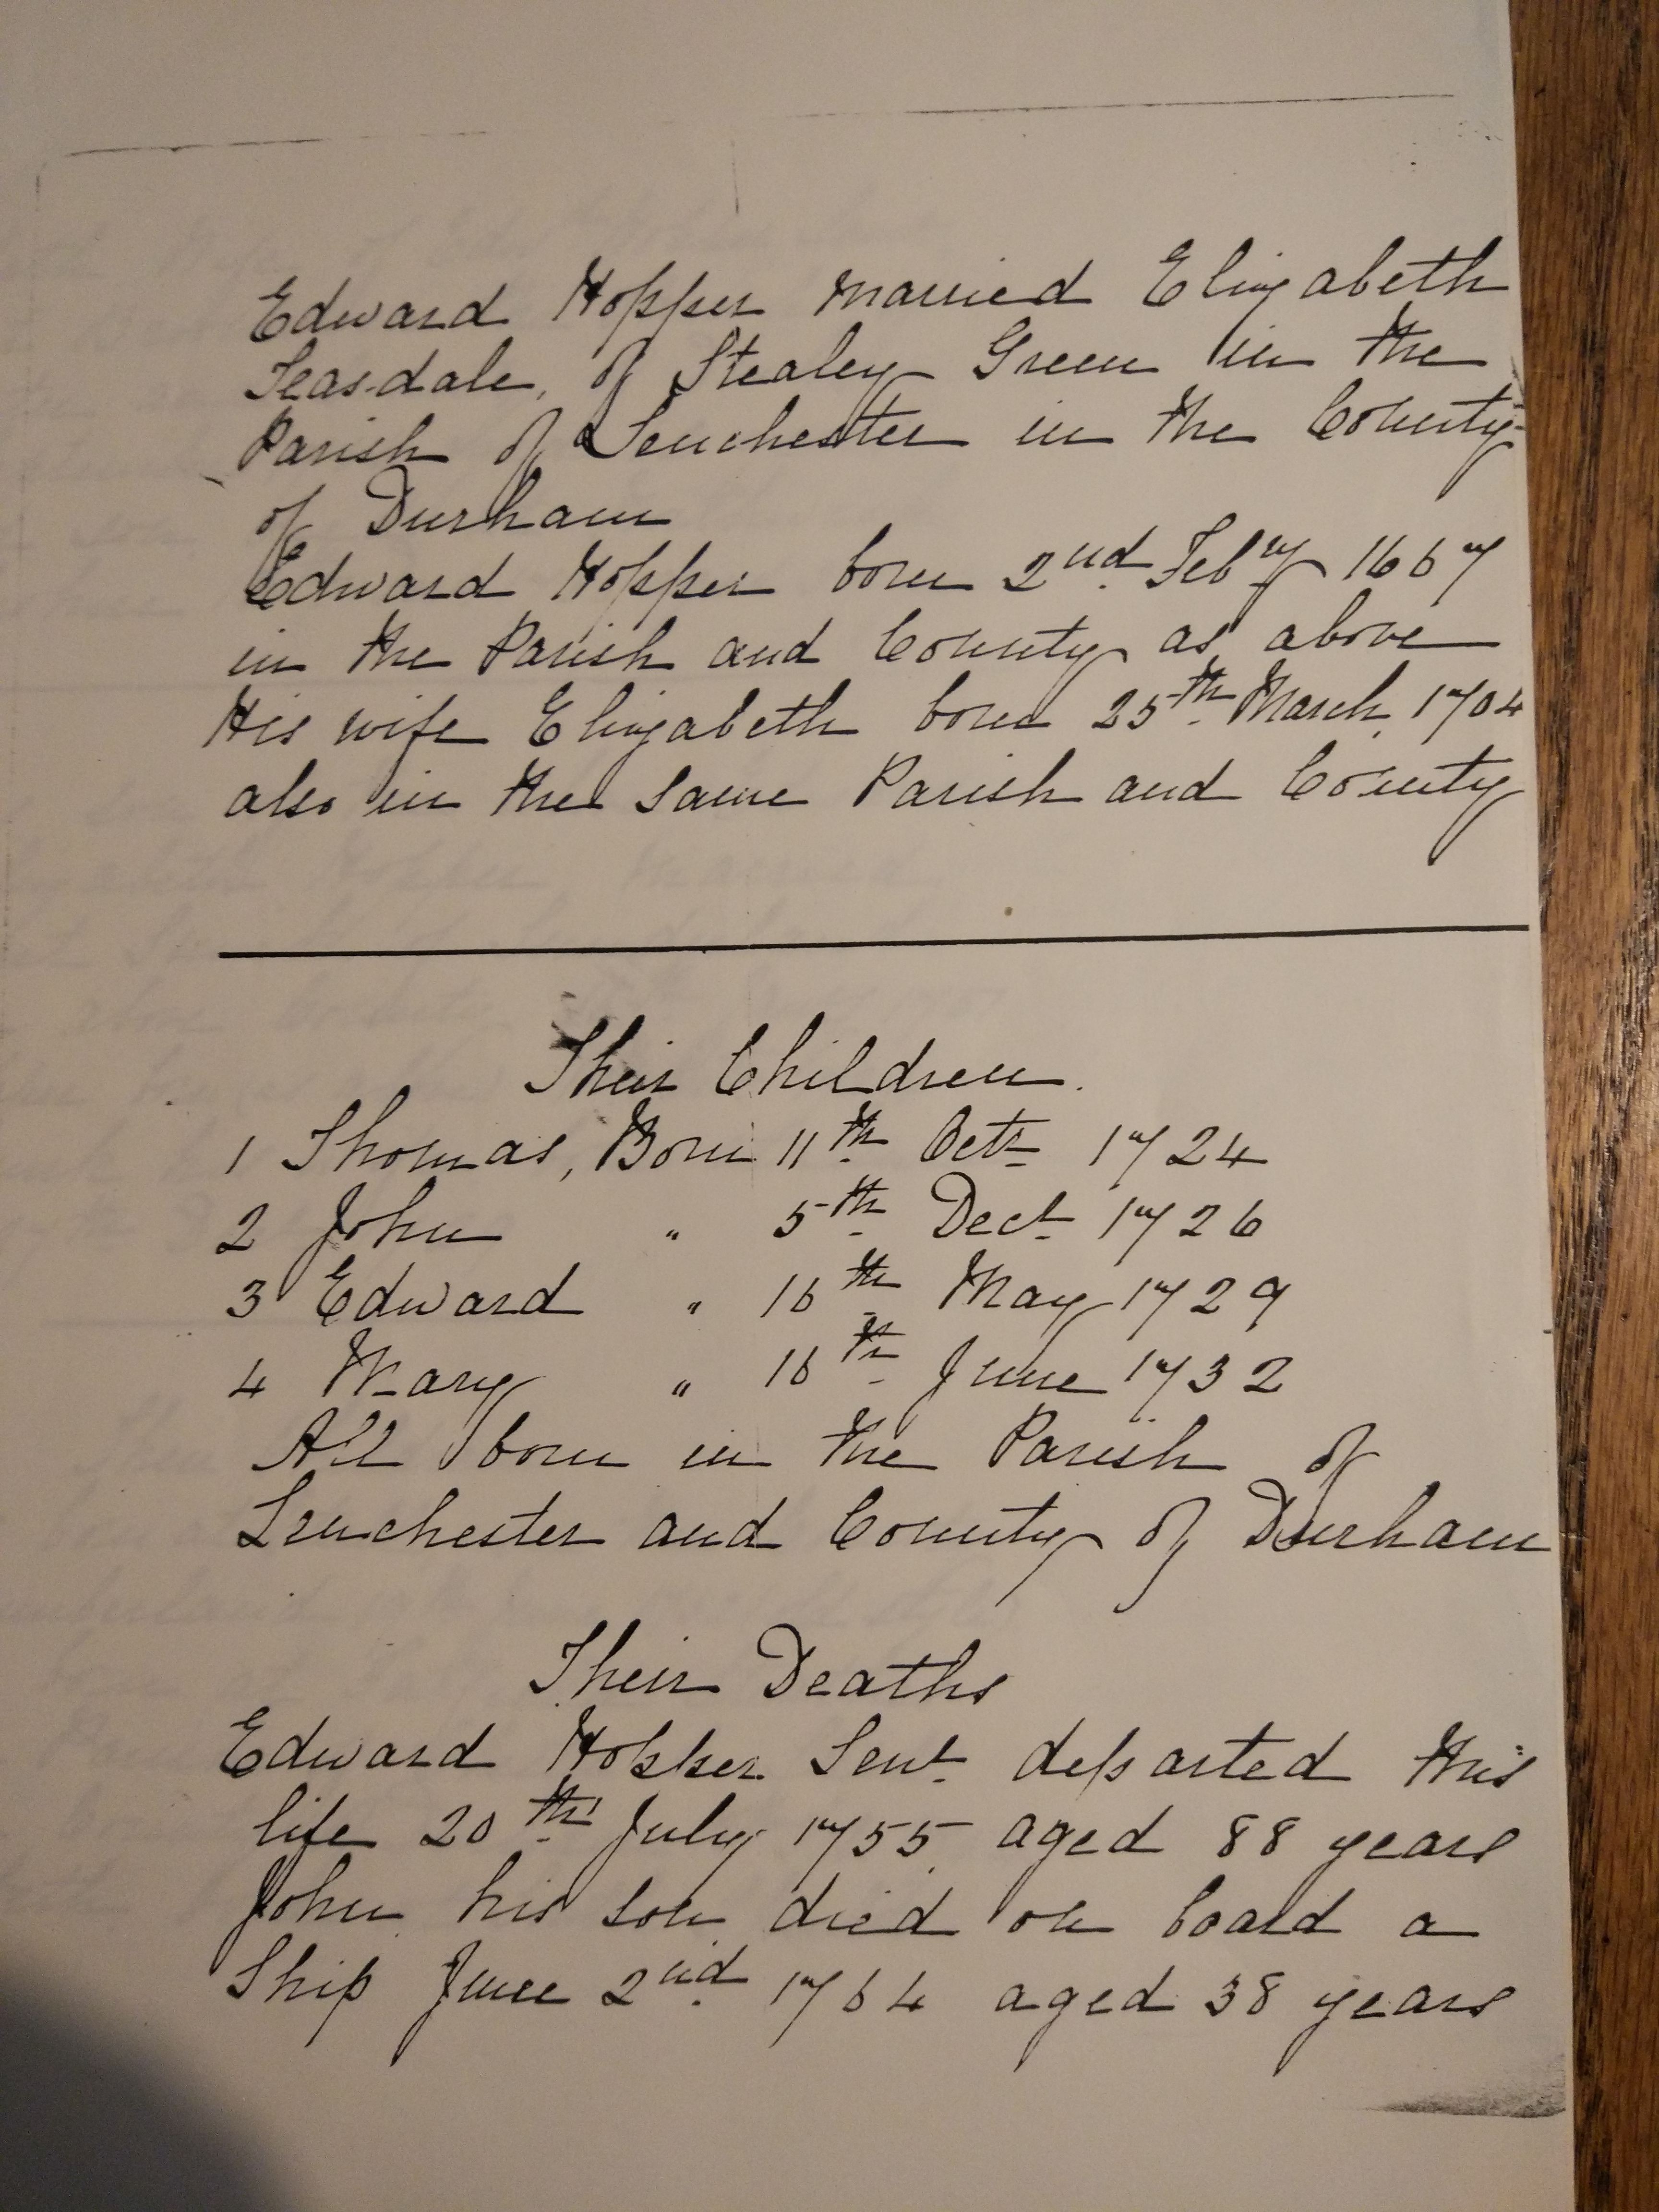 Edward Hopper married Elizabeth
Teasdale, of Stealey Green in the
Parish of Lenchester in the County
of Durham
Edward Hopper born 2nd. Feby 1667
in the Parish and County as above
His wife Elizabeth born 25th. March, 1704
also in the same Parish and County
Their Children.
1 Thomas, Born 11th. Octr 1724
2 John " 5th. Decr 1726
3 Edward " 16th. May 1729
4 Mary " 16th June 1732
All born in the Parish of
Lenchester and County of Durham
Their Deaths
Edward Hopper Senr departed this
life 20th. July 1755, aged 88 years
John his son died on board a
Ship June 2nd. 1764 aged 38 years